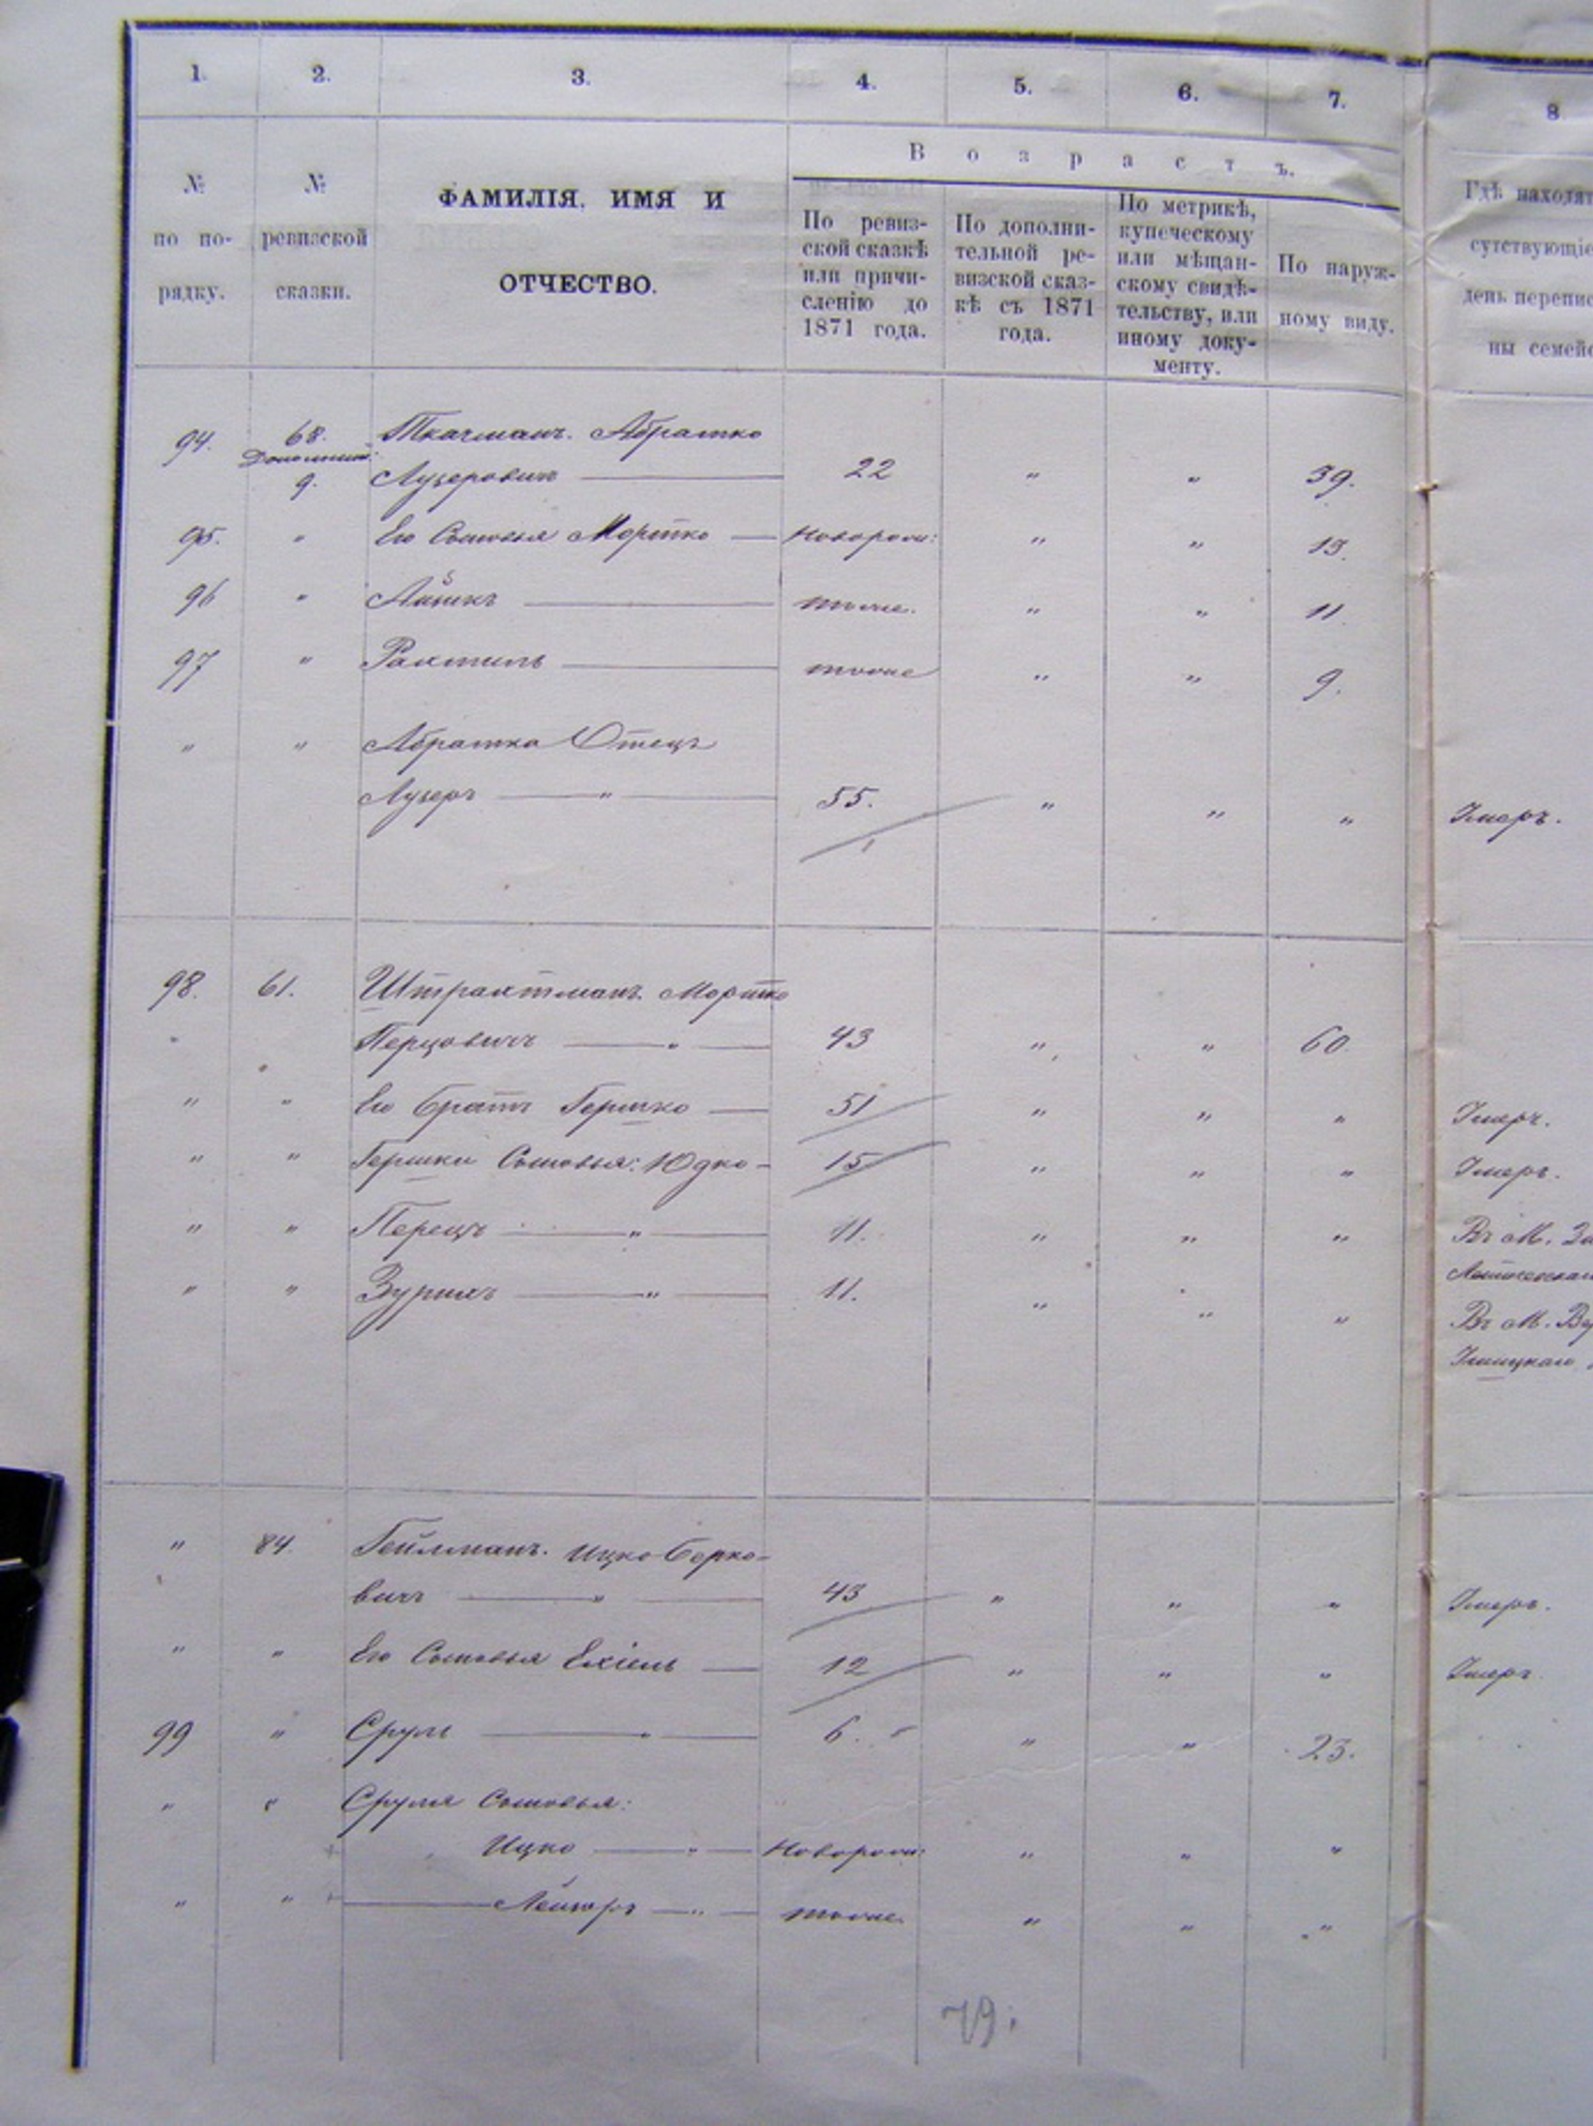 1. 2. 3. 4. 5. 6. 7. 8
№ по по- рядку.
№ ревизской сказки.
ФАМИЛІЯ, ИМЯ И
ОТЧЕСТВО.
Возрастъ.
По ревиз-
ской сказкѣ
или причи-
сленію до
1871 года.
По дополни-
тельной ре-
визской сказ-
кѣ съ 1871
года.
По метрикѣ,
купеческому
или мѣщан-
скому свидѣ-
тельству, или
иному доку-
менту.
По наруж-
ному виду.
Гдѣ находят
сутствующіе
день перепис
ны семейс
94. 68. Ткачманъ. Абрамко
Дополнит:
9. Лузеровичъ 22 " " 39.
95. " Его Сыновья Мортко Новорож: " " 13.
96 " Айзикъ тоже. " " 11.
97 " Рахмиль тоже " " 9.
" " Абрамка Отецъ
Лузеръ " 55. " " " Умеръ.
1
98. 61. Штрахтманъ. Мортко
" Перцовичъ " 43 " " 60.
" " Его братъ Гершко 51 " " " Умеръ.
" " Гершки Сыновья: Юдко 15 " " " Умеръ.
" " Перецъ " 11. " " " Въ М. За
Зурихъ " 11. " " "
Въ М. Ве
Ушицкаго
" 84. Гейлманъ. Ицко Берко-
вичъ " 43 " " " Умеръ.
" " Его Сыновья Ехіель 12 " " " Умеръ.
99 " Сруль " 6. " " 23.
" " Сруля Сыновья:
Ицко " Новорож: " " "
" " Лейзоръ " тоже. " " "
79.